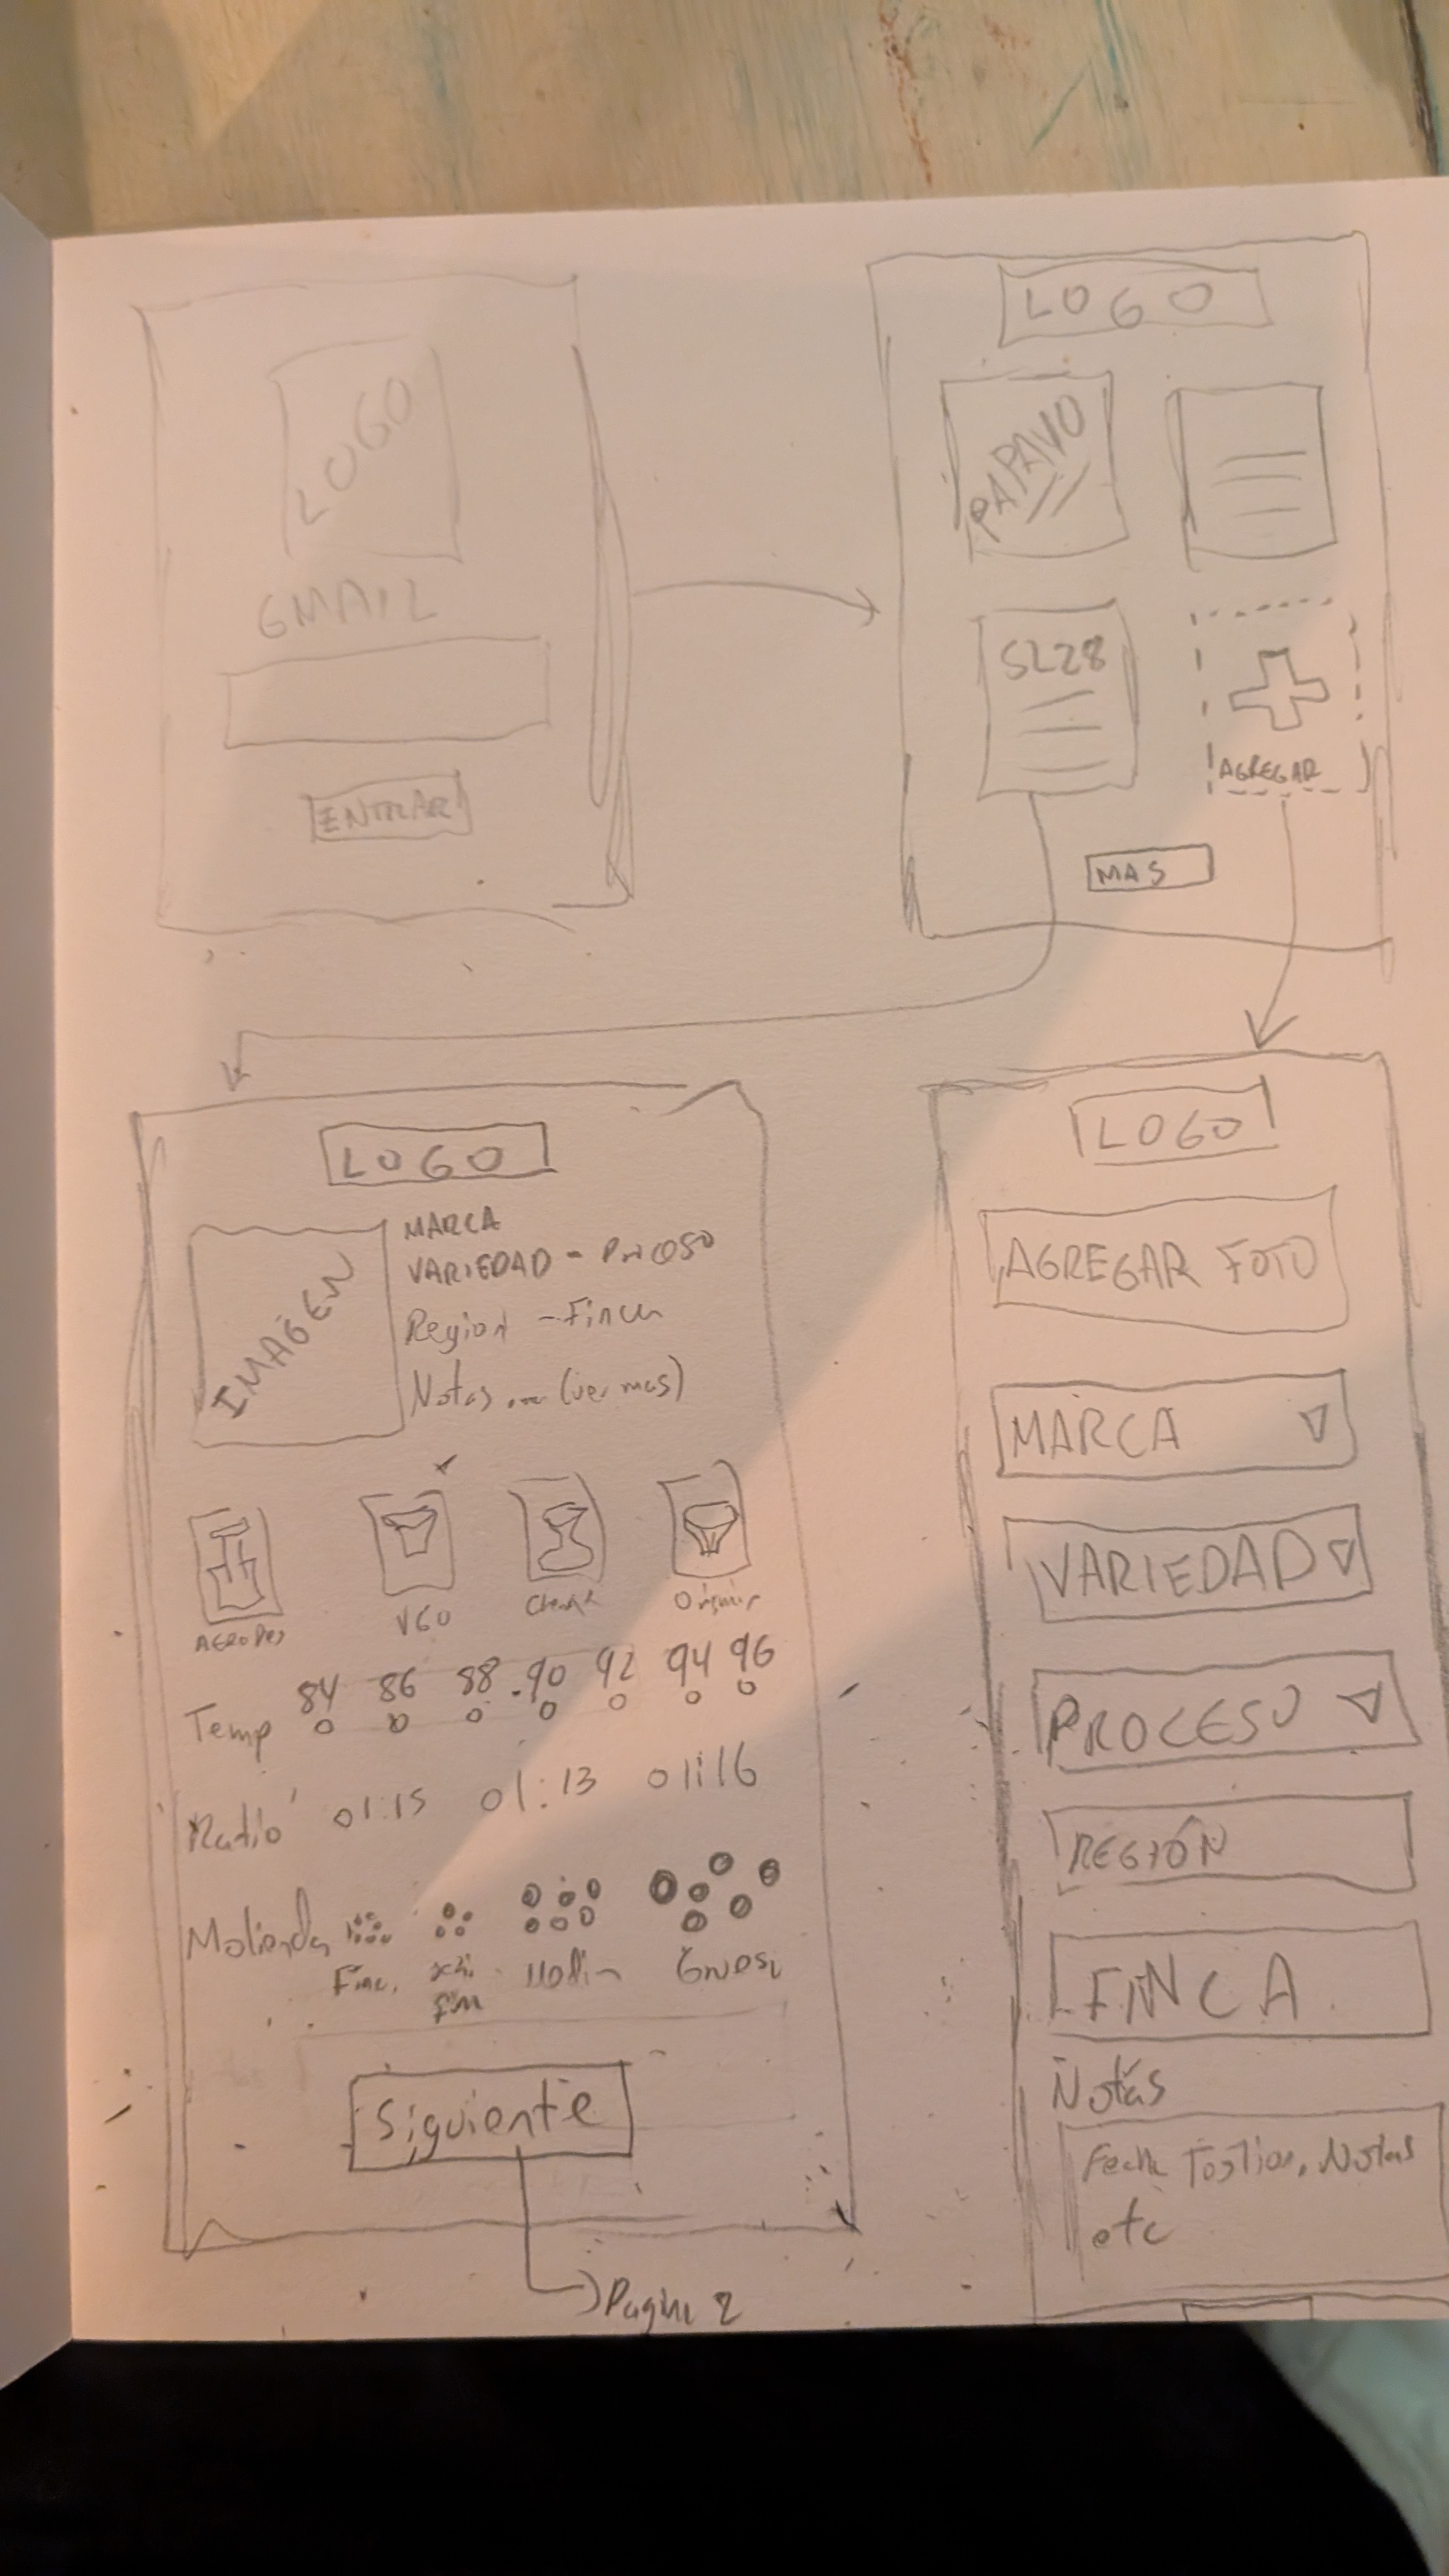 LOGO
GMAIL
ENTRAR
LOGO
PAPAYO
SL28
AGREGAR
MAS
LOGO
IMAGEN
MARCA
VARIEDAD - Proceso
Region - Finca
Notas ... (ver mas)
V60
Temp 84 86 88 90 92 94 96
Ratio 01:15 01:13 01:16
Molienda
Siguiente
Pagina 2
LOGO
AGREGAR FOTO
MARCA
VARIEDAD
PROCESO
REGIÓN
FINCA
Notas
Fecha Tostion, Notas
etc